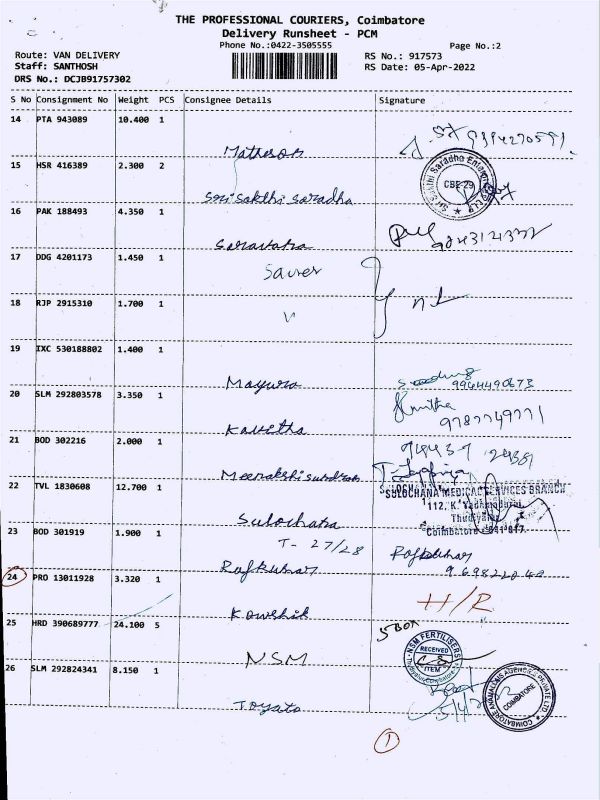 THE PROFESSIONAL COURIERS, Coimbatore
Delivery Runsheet - PCM
Phone No.:0422-3505555
Page No.:2
Route: VAN DELIVERY
RS No.: 917573
Staff: SANTHOSH
RS Date: 05-Apr-2022
DRS No.: DCJB91757302
S No Consignment No Weight PCS Consignee Details Signature
14 PTA 943089 10.400 1
Matheson
15 HSR 416389 2.300 2
Sri Sakthi Saradha
CBE-29
16 PAK 188493 4.350 1
Saravana
17 DDG 4201173 1.450 1
Saver
18 RJP 2915310 1.700 1
"
19 IXC 530188802 1.400 1
Mayura
9964490673
20 SLM 292803578 3.350 1
Kavitha
9787749771
21 BOD 302216 2.000 1
Meenakshi sundram
22 TVL 1830608 12.700 1
SULOCHANA MEDICAL SERVICES BRANCH
Sulochana
Coimbatore
23 BOD 301919 1.900 1
T- 27/28
Rajkumar
Rajkumar
24 PRO 13011928 3.320 1
Kowshik
H/R
25 HRD 390689777 24.100 5
5 BOX
NSM
NSM FERTILISERS
RECEIVED
ITEM
26 SLM 292824341 8.150 1
Toyato
COIMBATORE
1